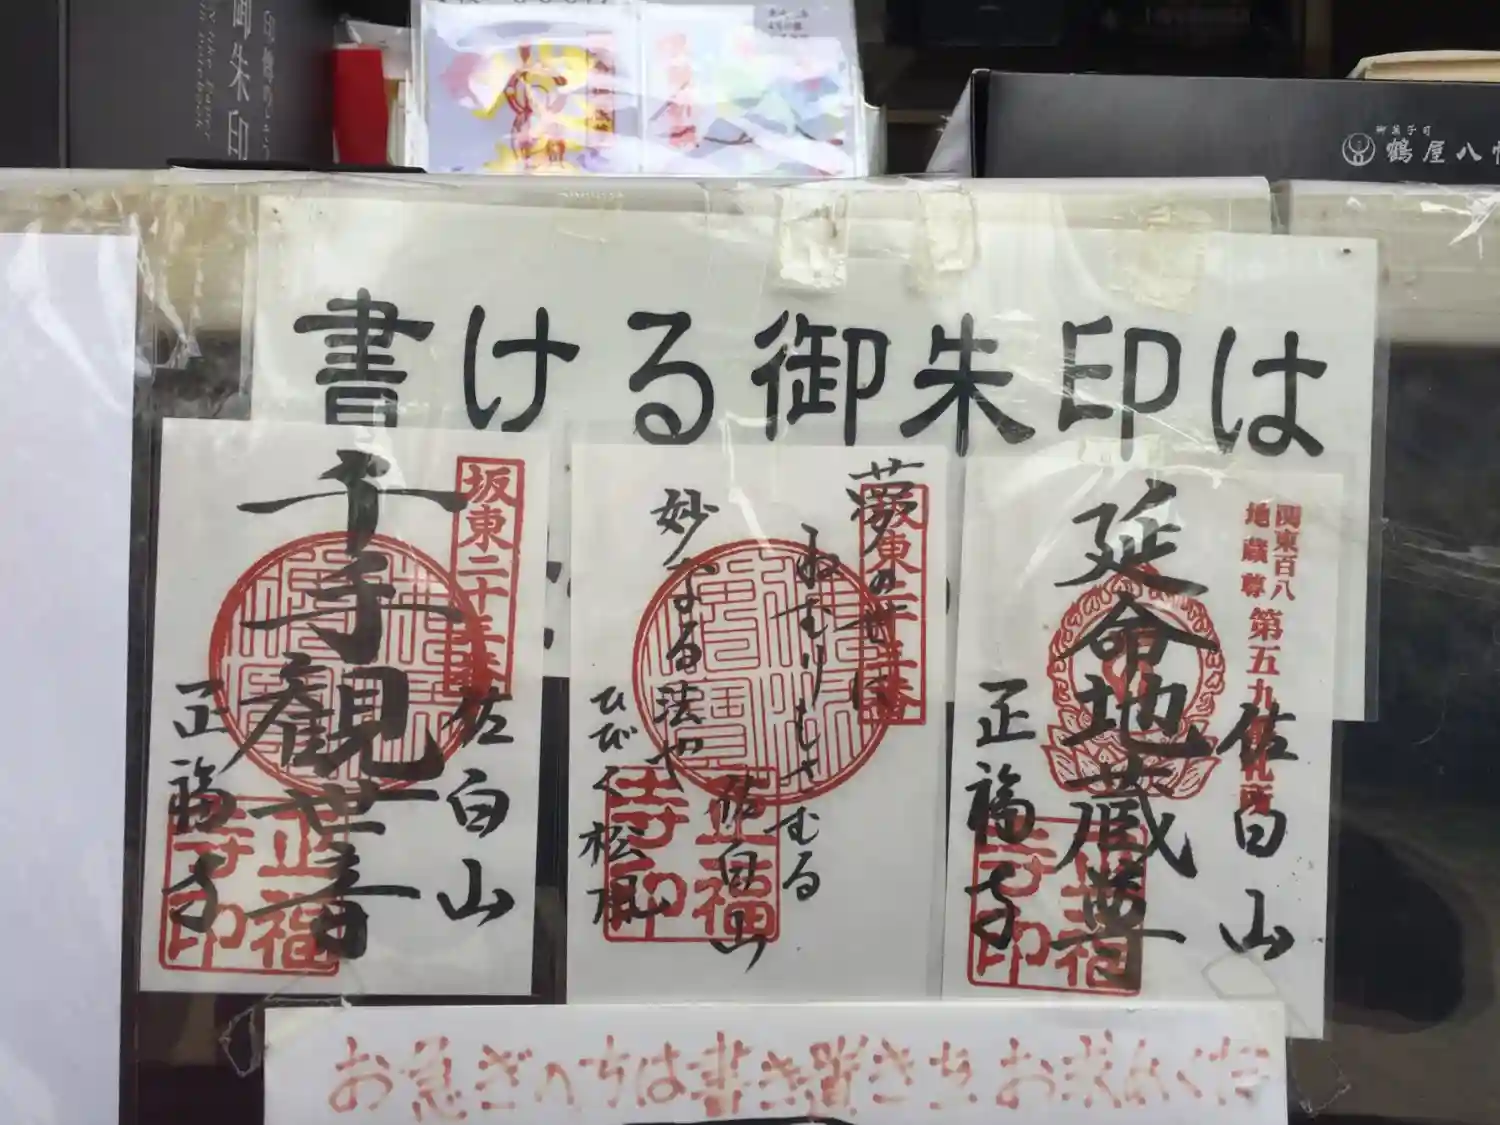 御朱印
御菓子司
鶴屋八
書ける御朱印は
坂東二十三番
千手観世音
佐白山
正福寺
正福寺印
坂東二十三番
夢の世に
ねむりもさむる
妙なる法や
ひびく松風
佐白山
正福寺印
関東百八
地蔵尊
第五九番札所
延命地蔵尊
佐白山
正福寺
正福寺印
お急ぎの方は書き置きをお求めくだ